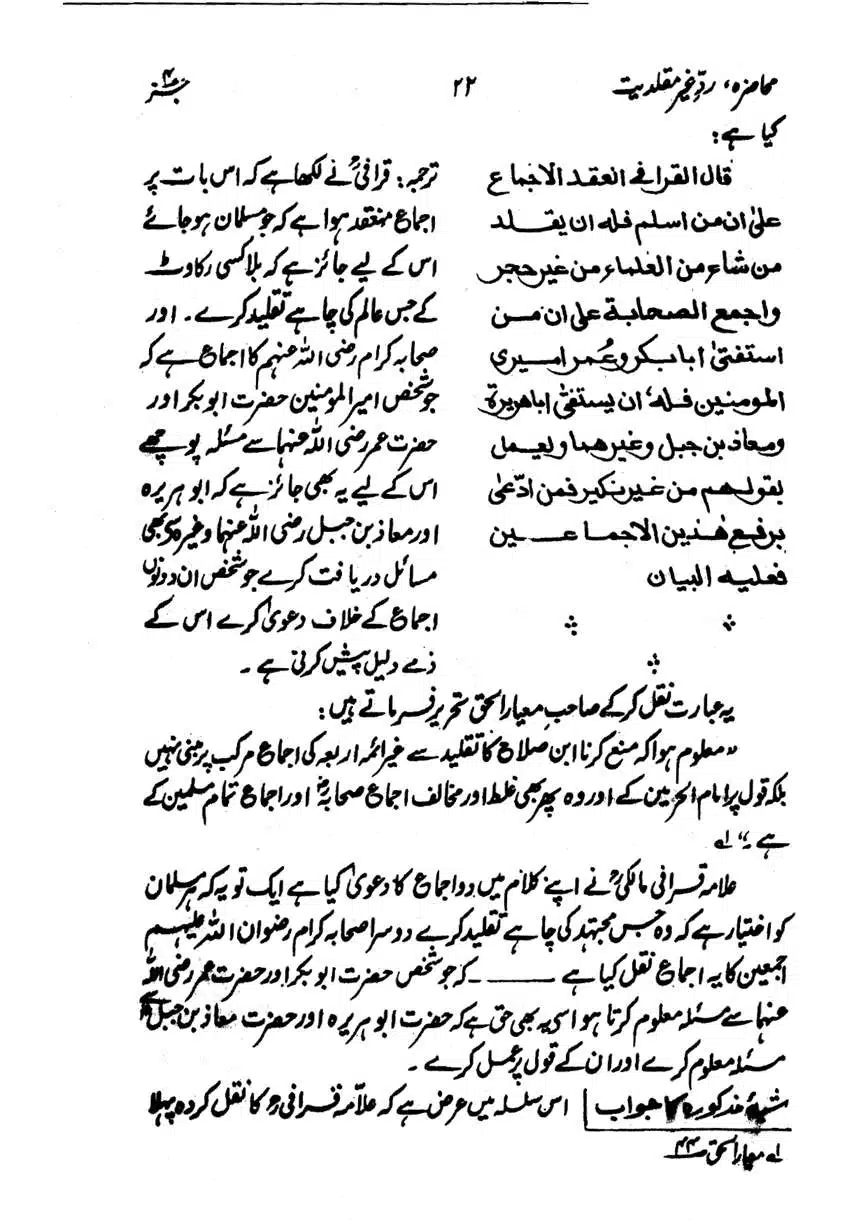 محاضرہ، ردِّ غیر مقلدیت
۲۲
جز ۴
کیا ہے:
قال القرافی العقد الاجماع
علیٰ ان من اسلم فله ان یقلد
من شاء من العلماء من غیر حجر
واجمع الصحابة علی ان من
استفتیٰ ابابکر و عُمر امیری
المومنین فله' ان یستفتی اباهریرة
ومعاذ بن جبل وغیرهما ولعمل
بقولهم من غیر نکیر فمن ادّعیٰ
برفع هٰذین الاجماعین
فعلیه البیان
ترجمہ: قرافیؒ نے لکھا ہے کہ اس بات پر
اجماع منعقد ہوا ہے کہ جو مسلمان ہو جائے
اس کے لیے جائز ہے کہ بلا کسی رکاوٹ
کے جس عالم کی چاہے تقلید کرے۔ اور
صحابہ کرام رضی اللہ عنہم کا اجماع ہے کہ
جو شخص امیر المومنین حضرت ابوبکر اور
حضرت عمر رضی اللہ عنہما سے مسئلہ پوچھے
اس کے لیے یہ بھی جائز ہے کہ ابو ہریرہ
اور معاذ بن جبل رضی اللہ عنہما وغیرہ سے بھی
مسائل دریافت کرے جو شخص ان دونوں
اجماع کے خلاف دعویٰ کرے اس کے
ذمے دلیل پیش کرنی ہے۔
یہ عبارت نقل کر کے صاحبِ معیار الحق تحریر فرماتے ہیں:
"معلوم ہوا کہ منع کرنا ابن صلاح کا تقلید سے غیر ائمہ اربعہ کی اجماع مرکب پر مبنی نہیں
بلکہ قول پر امام الحرمین کے اور وہ پھر بھی غلط اور مخالف اجماع صحابہؓ اور اجماع تمام مسلمین کے
ہے۔" لے
علامہ قرافی مالکیؒ نے اپنے کلام میں دو اجماع کا دعویٰ کیا ہے ایک تو یہ کہ ہر مسلمان
کو اختیار ہے کہ وہ جس مجتہد کی چاہے تقلید کرے دوسرا صحابہ کرام رضوان اللہ علیہم
اجمعین کا یہ اجماع نقل کیا ہے ——— کہ جو شخص حضرت ابوبکر اور حضرت عمر رضی اللہ
عنہما سے مسئلہ معلوم کرتا ہو اسی یہ بھی حق ہے کہ حضرت ابو ہریرہ اور حضرت معاذ بن جبلؓ سے
مسئلہ معلوم کرے اور ان کے قول پر عمل کرے۔
شبۂ مذکورہ کا جواب اس سلسلہ میں عرض ہے کہ علّامہ قرافیؒ کا نقل کردہ پہلا
لے معیار الحق ص۴۴